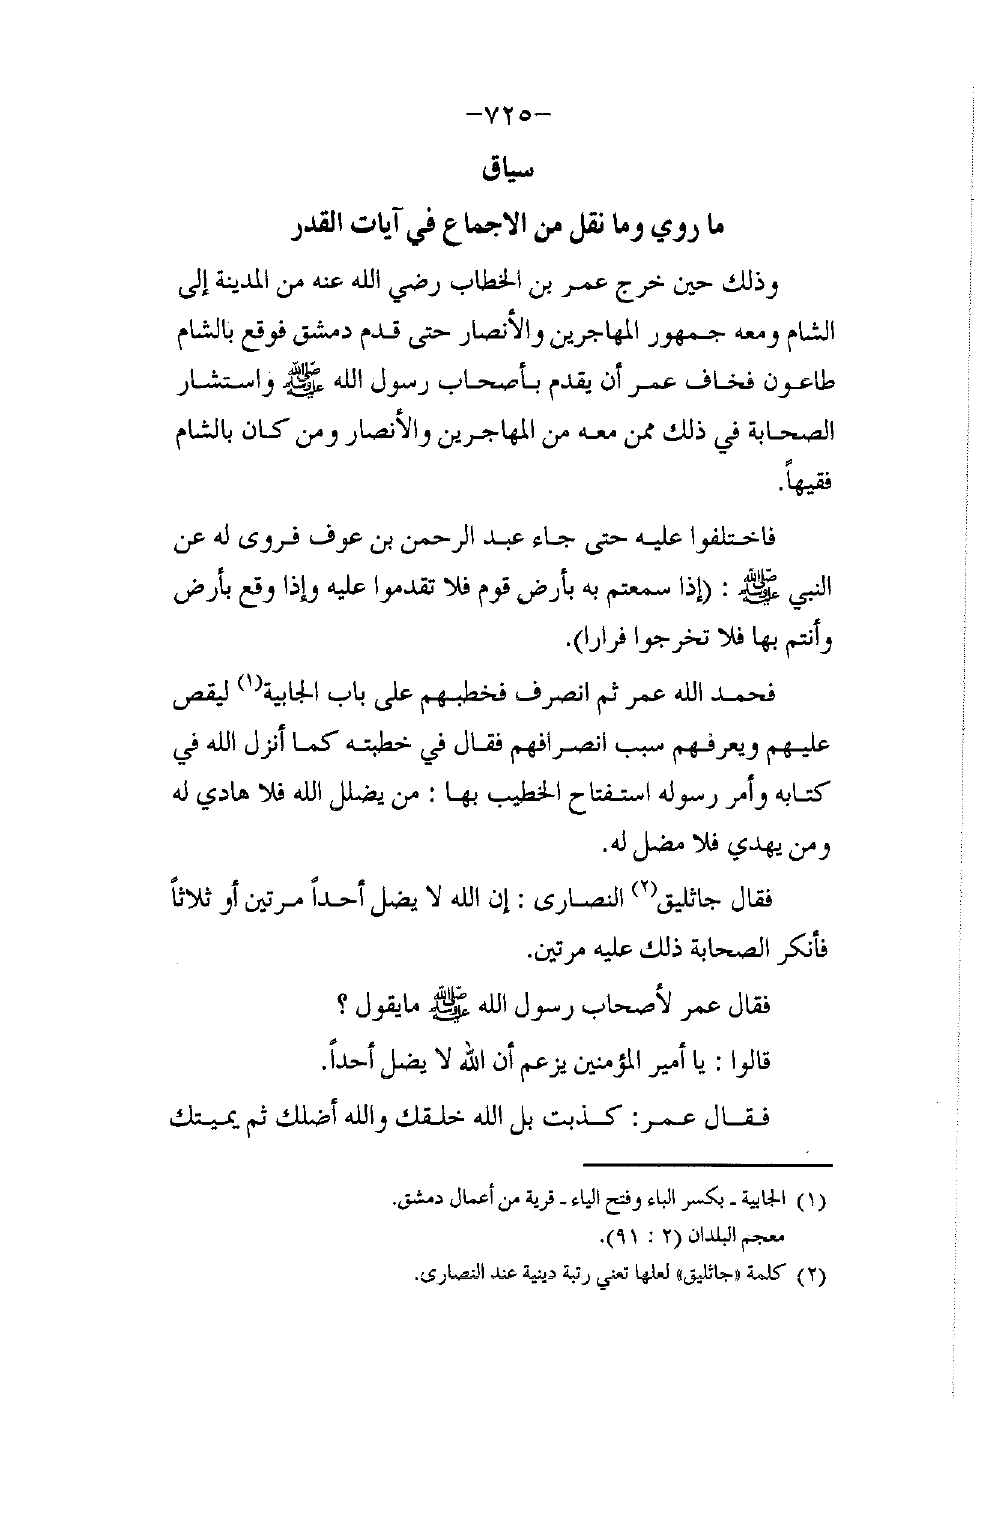 -٧٢٥-
سياق
ما روي وما نقل من الاجماع في آيات القدر
وذلك حين خرج عمر بن الخطاب رضي الله عنه من المدينة إلى
الشام ومعه جمهور المهاجرين والأنصار حتى قدم دمشق فوقع بالشام
طاعون فخاف عمر أن يقدم بأصحاب رسول الله ﷺ واستشار
الصحابة في ذلك ممن معه من المهاجرين والأنصار ومن كان بالشام
فقيهاً.
فاختلفوا عليه حتى جاء عبد الرحمن بن عوف فروى له عن
النبي ﷺ : (إذا سمعتم به بأرض قوم فلا تقدموا عليه وإذا وقع بأرض
وأنتم بها فلا تخرجوا فرارا).
فحمد الله عمر ثم انصرف فخطبهم على باب الجابية(١) ليقص
عليهم ويعرفهم سبب انصرافهم فقال في خطبته كما أنزل الله في
كتابه وأمر رسوله استفتاح الخطيب بها : من يضلل الله فلا هادي له
ومن يهدي فلا مضل له.
فقال جاثليق(٢) النصارى : إن الله لا يضل أحداً مرتين أو ثلاثاً
فأنكر الصحابة ذلك عليه مرتين.
فقال عمر لأصحاب رسول الله ﷺ مايقول ؟
قالوا : يا أمير المؤمنين يزعم أن الله لا يضل أحداً.
فقال عمر: كذبت بل الله خلقك والله أضلك ثم يميتك
(١) الجابية ـ بكسر الباء وفتح الياء ـ قرية من أعمال دمشق.
معجم البلدان (٢ : ٩١).
(٢) كلمة «جاثليق» لعلها تعني رتبة دينية عند النصارى.